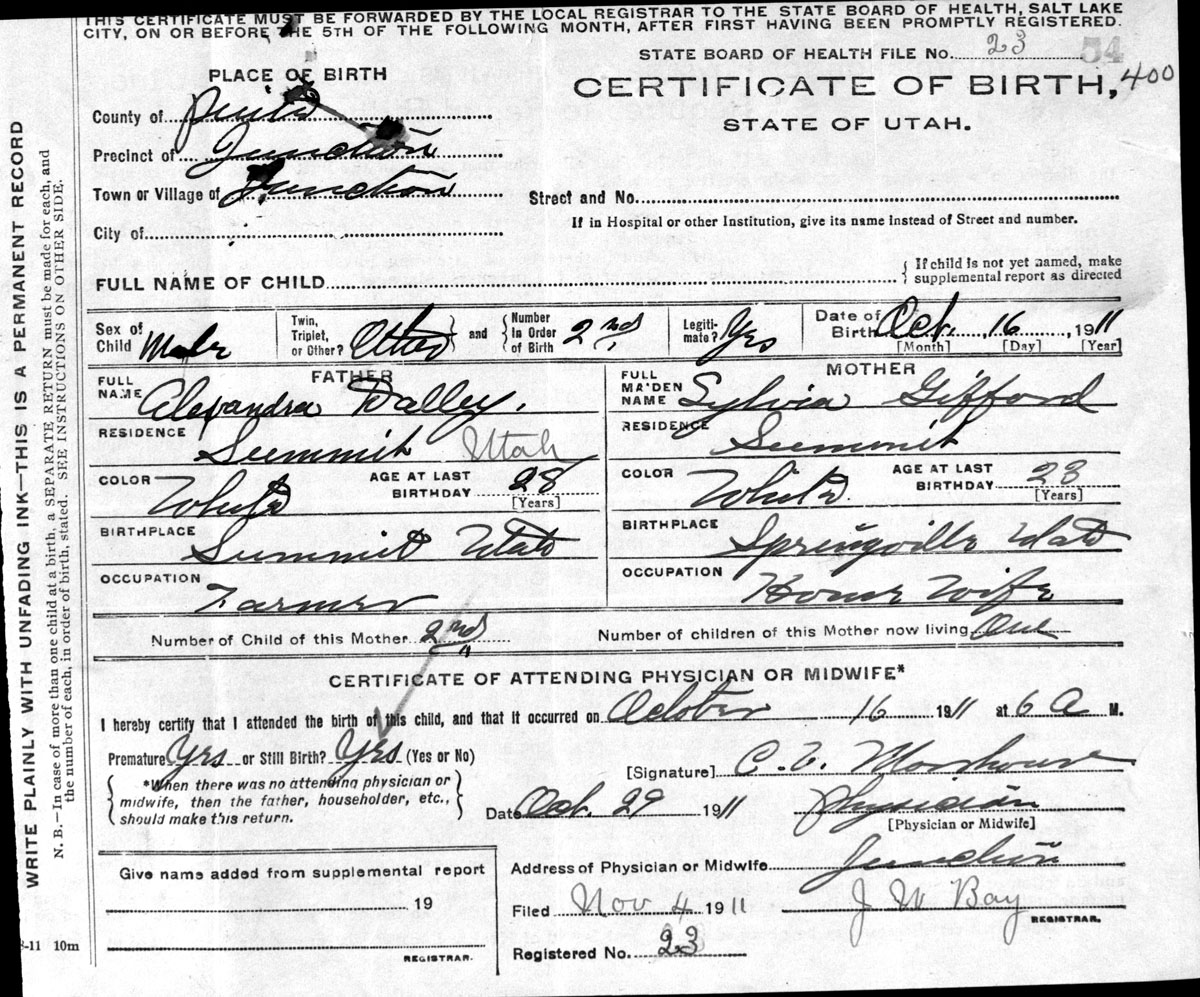 THIS CERTIFICATE MUST BE FORWARDED BY THE LOCAL REGISTRAR TO THE STATE BOARD OF HEALTH, SALT LAKE
CITY, ON OR BEFORE THE 5TH OF THE FOLLOWING MONTH, AFTER FIRST HAVING BEEN PROMPTLY REGISTERED.
STATE BOARD OF HEALTH FILE No. 23 54
PLACE OF BIRTH
CERTIFICATE OF BIRTH, 400
STATE OF UTAH.
County of
Precinct of Junction
Town or Village of Junction
Street and No.
If in Hospital or other Institution, give its name instead of Street and number.
City of
FULL NAME OF CHILD
{ If child is not yet named, make
supplemental report as directed
Sex of Child Male
Twin, Triplet, or Other? Other
and
Number in Order of Birth 2nd
Legitimate? Yes
Date of Birth Oct. 16, 1911
[Month] [Day] [Year]
FATHER
FULL NAME Alexandra Dalley.
RESIDENCE Summit Utah
COLOR White
AGE AT LAST BIRTHDAY 28
[Years]
BIRTHPLACE Summit Utah
OCCUPATION Farmer
MOTHER
FULL MAIDEN NAME Sylvia Gifford
RESIDENCE Summit
COLOR White.
AGE AT LAST BIRTHDAY 23
[Years]
BIRTHPLACE Springville Utah
OCCUPATION House Wife
Number of Child of this Mother 2nd
Number of children of this Mother now living One
CERTIFICATE OF ATTENDING PHYSICIAN OR MIDWIFE*
I hereby certify that I attended the birth of this child, and that it occurred on October 16 1911 at 6 A M.
Premature Yes or Still Birth? Yes (Yes or No)
*When there was no attending physician or
midwife, then the father, householder, etc.,
should make this return.
[Signature] C. E.
Date Oct. 29 1911
Physician
[Physician or Midwife]
Give name added from supplemental report
19
REGISTRAR.
Address of Physician or Midwife Junction
Filed Nov 4 1911
J W Bay
REGISTRAR.
Registered No. 23
-11 10m
WRITE PLAINLY WITH UNFADING INK—THIS IS A PERMANENT RECORD
N. B.—In case of more than one child at a birth, a SEPARATE RETURN must be made for each, and
the number of each, in order of birth, stated. SEE INSTRUCTIONS ON OTHER SIDE.